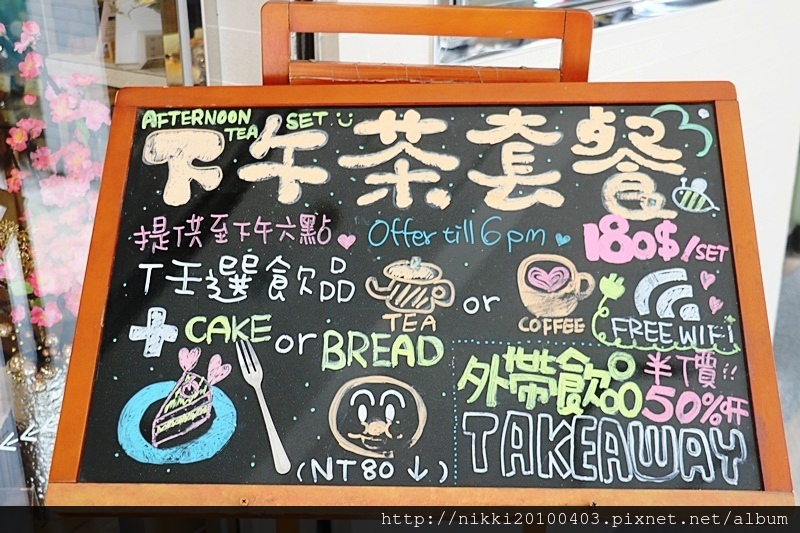 AFTERNOON TEA SET
下午茶套餐
提供至下午六點 Offer till 6 pm 180$/SET
任選飲品 TEA or COFFEE
FREE WIFI
+ CAKE or BREAD
(NT80↓)
外帶飲品 半價!!
50% OFF
TAKEAWAY
http://nikki20100403.pixnet.net/album